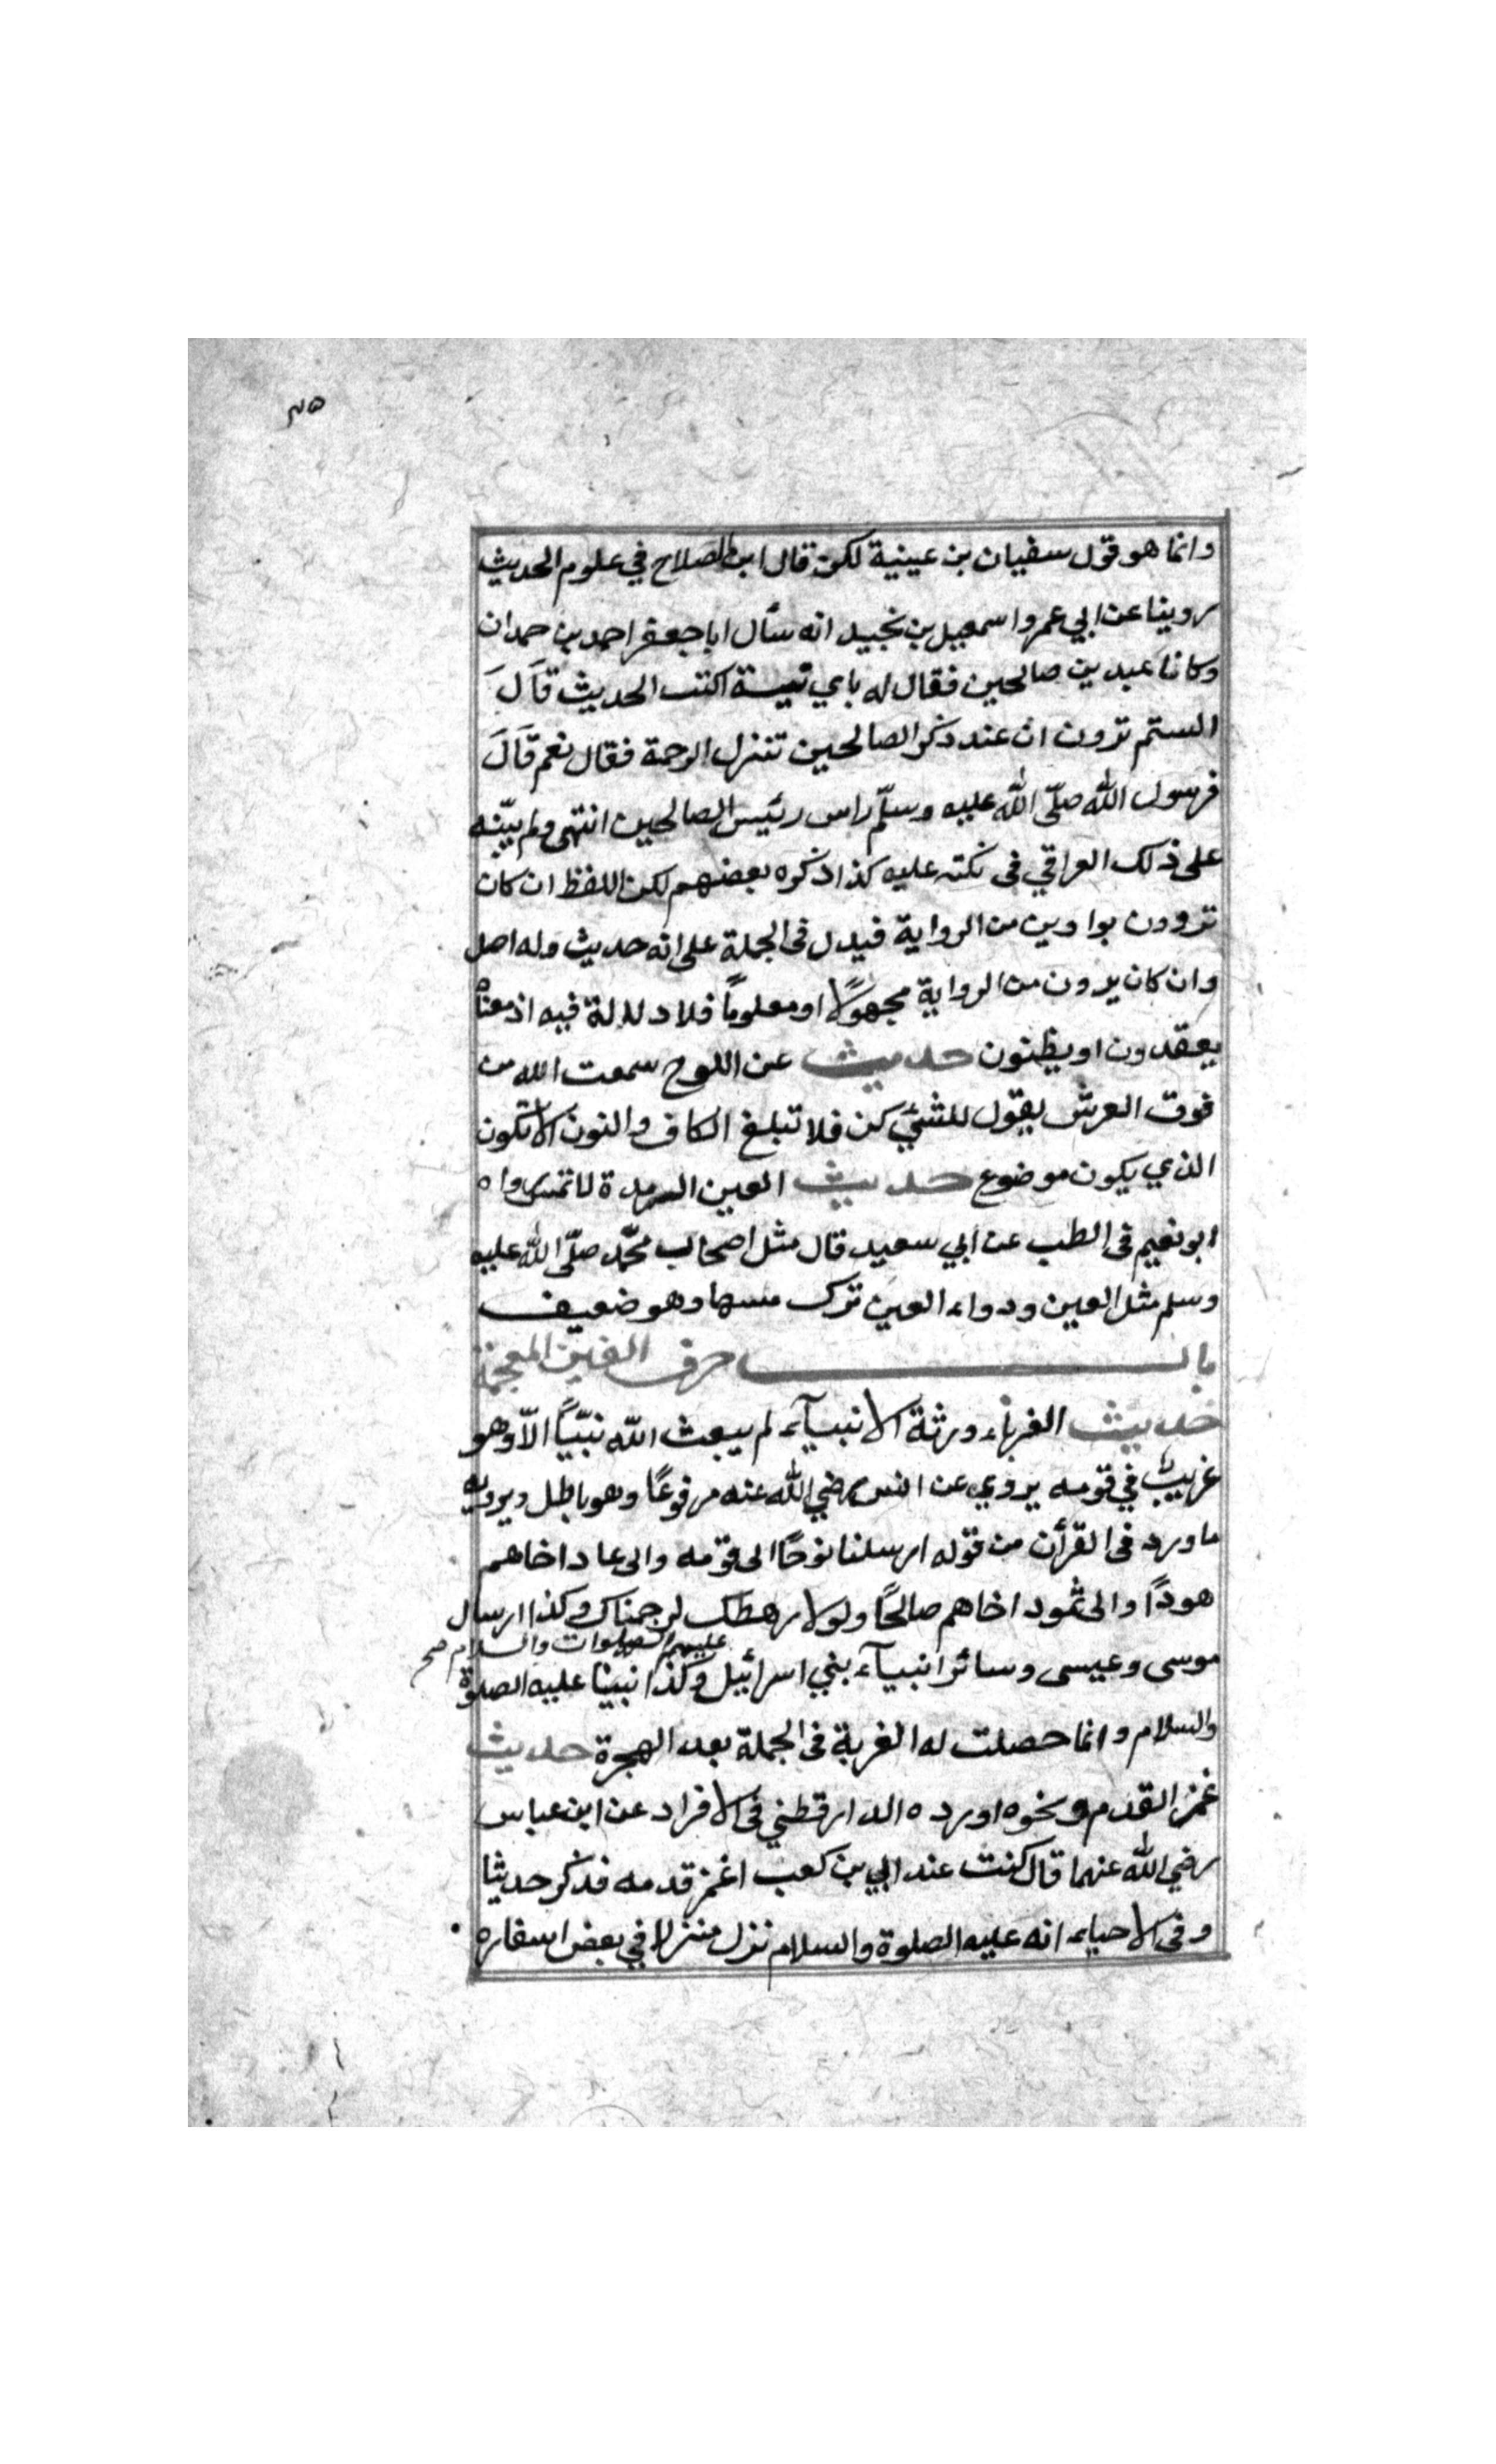 وانما هو قول سفيان بن عيينة لكن قال ابن الصلاح في علوم الحديث
روينا عن ابي عمرو اسمعيل بن نجيد انه سأل ابا جعفر احمد بن حمدان
وكانا عبدين صالحين فقال له باي نية اكتب الحديث قال
الستم ترون ان عند ذكر الصالحين تنزل الرحمة فقال نعم قال
فرسول الله صلّى الله عليه وسلّم راس رئيس الصالحين انتهى ولم ينبّه
على ذلك العراقي فى نكته عليه كذا ذكره بعضهم لكن اللفظ ان كان
تروون بواوين من الرواية فيدل فى الجملة على انه حديث وله اصل
وان كان يرون من الرواية مجهولًا او معلومًا فلا دلالة فيه اذ معناه
يعقدون او يظنون حديث عن اللوح سمعت الله من
فوق العرش يقول للشئ كن فلا تبلغ الكاف والنون الا تكون
الذي يكون موضوع حديث العين الرمدة لا تمس رواه
ابو نعيم فى الطب عن ابي سعيد قال مثل اصحاب محمّد صلّى الله عليه
وسلم مثل العين ودواء العين ترك مسها وهو ضعيف
باب حرف الغين المعجمة
حديث الغرباء ورثة الانبيآء لم يبعث الله نبيّاً الّا وهو
غريب في قومه يروي عن انس رضي الله عنه مرفوعًا وهو باطل ويرويه
ما ورد فى القرأن من قوله ارسلنا نوحًا الى قومه والى عاد اخاهم
هودًا والى ثمود اخاهم صالحًا ولولا رهطك لرجمناك وكذا ارسال
عليهم الصلوات والسلام صح
موسى وعيسى وسائر انبيآء بني اسرائيل وكذا نبينا عليه الصلوة
والسلام وانما حصلت له الغربة فى الجملة بعد الهجرة حديث
غمز القدم ونحوه اورده الدارقطني فى الافراد عن ابن عباس
رضي الله عنهما قال كنت عند ابي بن كعب اغمز قدمه فذكر حديثا
وفى الاحياء انه عليه الصلوة والسلام نزل منزلا في بعض اسفاره